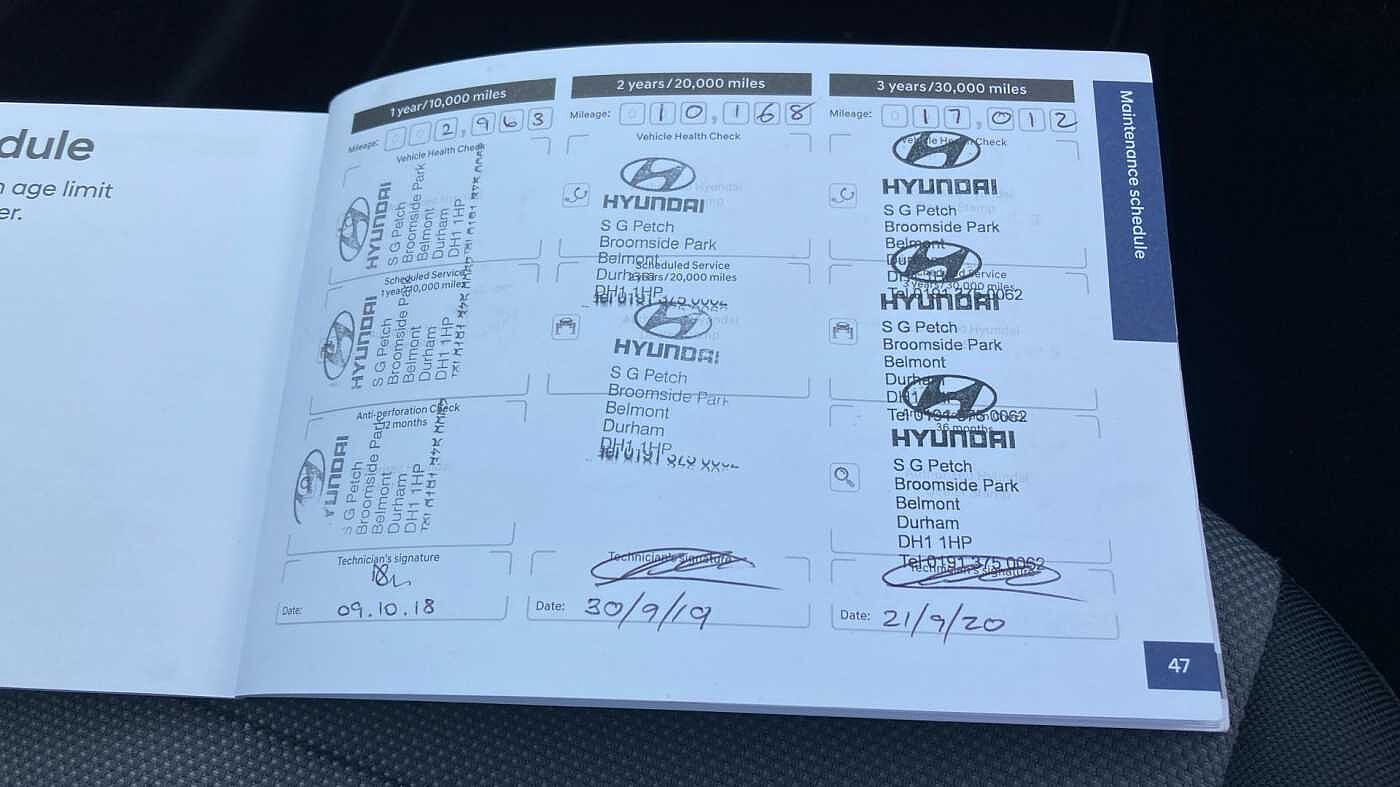 dule
n age limit
er.
1 year/10,000 miles
Mileage: 2,963
Vehicle Health Check
HYUNDAI
S G Petch
Broomside Park
Belmont
Durham
DH1 1HP
Scheduled Service
1 year/10,000 miles
HYUNDAI
S G Petch
Broomside Park
Belmont
Durham
DH1 1HP
Anti-perforation Check
12 months
HYUNDAI
S G Petch
Broomside Park
Belmont
Durham
DH1 1HP
Technician's signature
Date: 09.10.18
2 years/20,000 miles
Mileage: 010,168
Vehicle Health Check
HYUNDAI
S G Petch
Broomside Park
Belmont
Durham
DH1 1HP
Scheduled Service
2 years/20,000 miles
HYUNDAI
S G Petch
Broomside Park
Belmont
Durham
DH1 1HP
Technician's signature
Date: 30/9/19
3 years/30,000 miles
Mileage: 017,012
Vehicle Health Check
HYUNDAI
S G Petch
Broomside Park
Belmont
Durham
DH1 1HP
Tel 0191 375 0062
Scheduled Service
3 years/30,000 miles
HYUNDAI
S G Petch
Broomside Park
Belmont
Durham
DH1 1HP
Tel 0191 375 0062
36 months
HYUNDAI
S G Petch
Broomside Park
Belmont
Durham
DH1 1HP
Tel 0191 375 0062
Technician's signature
Date: 21/9/20
Maintenance schedule
47